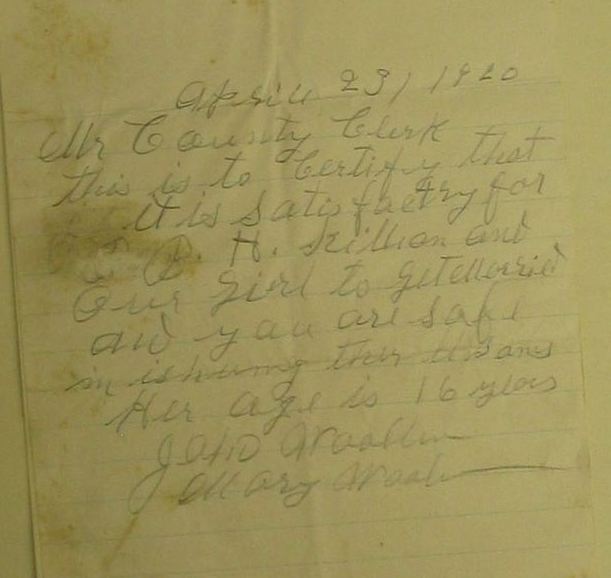 Aprill 23, 1920
Mr County Clerk
this is to Certify that
it is satisfactry for
H. Killion and
Our girl to get Merried
and you are safe
in ishuing
Her age is 16 years
John
Mary